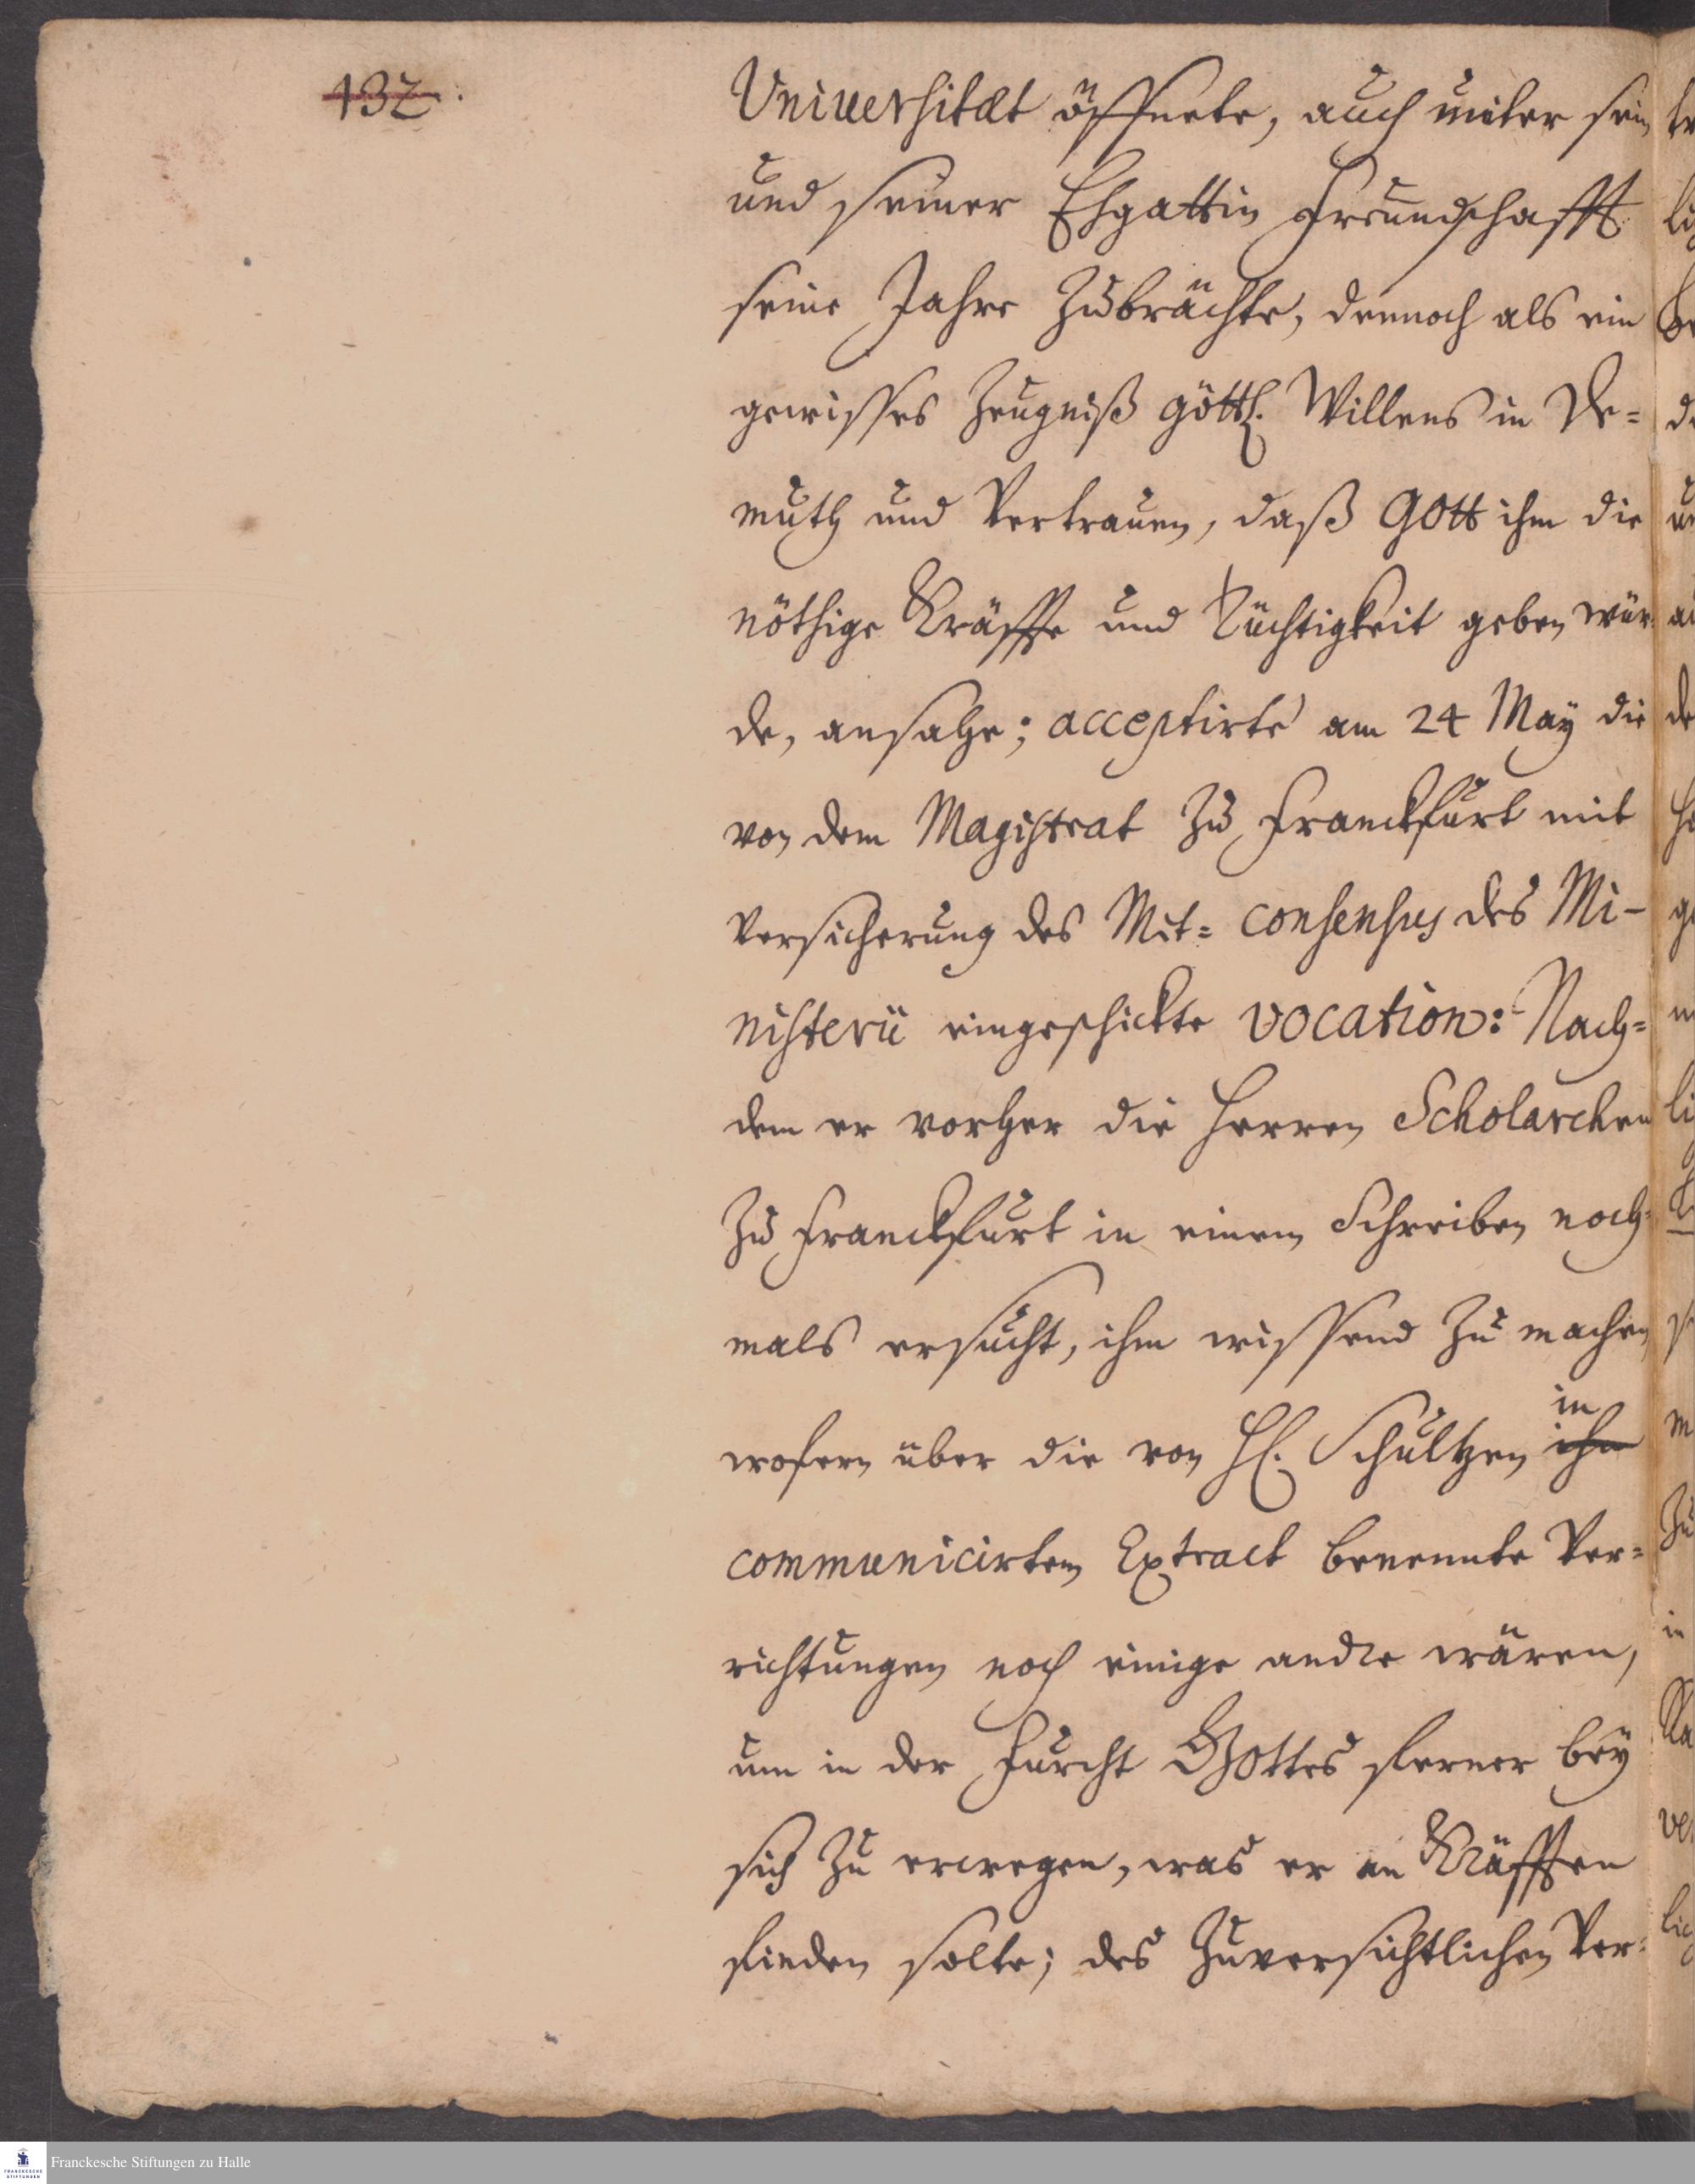 132.
Universitæt öffnete, auch unter sein
und seiner Ehgattin Freundschafft
seine Jahre zubrächte, dennoch als ein
gewisses Zeugniß göttl. Willens in De=
muth und Vertrauen, daß GOtt ihm die
nöthige Kräffte und Tüchtigkeit geben wür
de, ansahe; acceptirte am 24 May die
von dem Magistrat zu Franckfurt mit
Versicherung des Mit= consensus des Mi-
nisterii eingeschickte vocation: Nach=
dem er vorher die Herren Scholarchen
zu Franckfurt in einem Schreiben noch=
mals ersucht, ihm wissend zu machen,
in
wofern über die von H. Schultzen ihm
communicirtem Extract benennte Ver=
richtungen noch einige andre wären,
um in der Furcht GOttes ferner bey
sich zu erwegen, was er an Kräfften
finden solte; des zuversichtlichen Ver=
Franckesche Stiftungen zu Halle
FRANCKESCHE
STIFTUNGEN